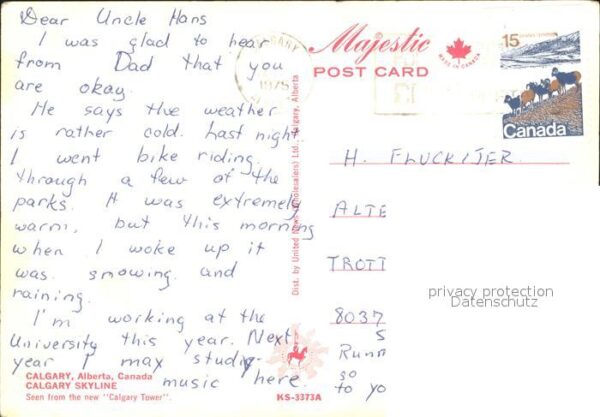 Dear Uncle Hans
I was glad to hear
from Dad that you
are okay.
He says the weather
is rather cold. Last night
I went bike riding
through a few of the
parks. It was extremely
warm, but this morning
when I woke up it
was snowing and
raining.
I'm working at the
University this year. Next
year I may study
music here.
CALGARY, Alberta, Canada
CALGARY SKYLINE
Seen from the new "Calgary Tower".
CALGARY
1975
Dist. by United News (Wholesalers) Ltd., Calgary, Alberta
Majestic
MADE IN CANADA
POST CARD
15
Canada
H. FLUCKIJER
ALTE
TROTT
privacy protection
Datenschutz
8037
S
Runn
so
to yo
KS-3373A